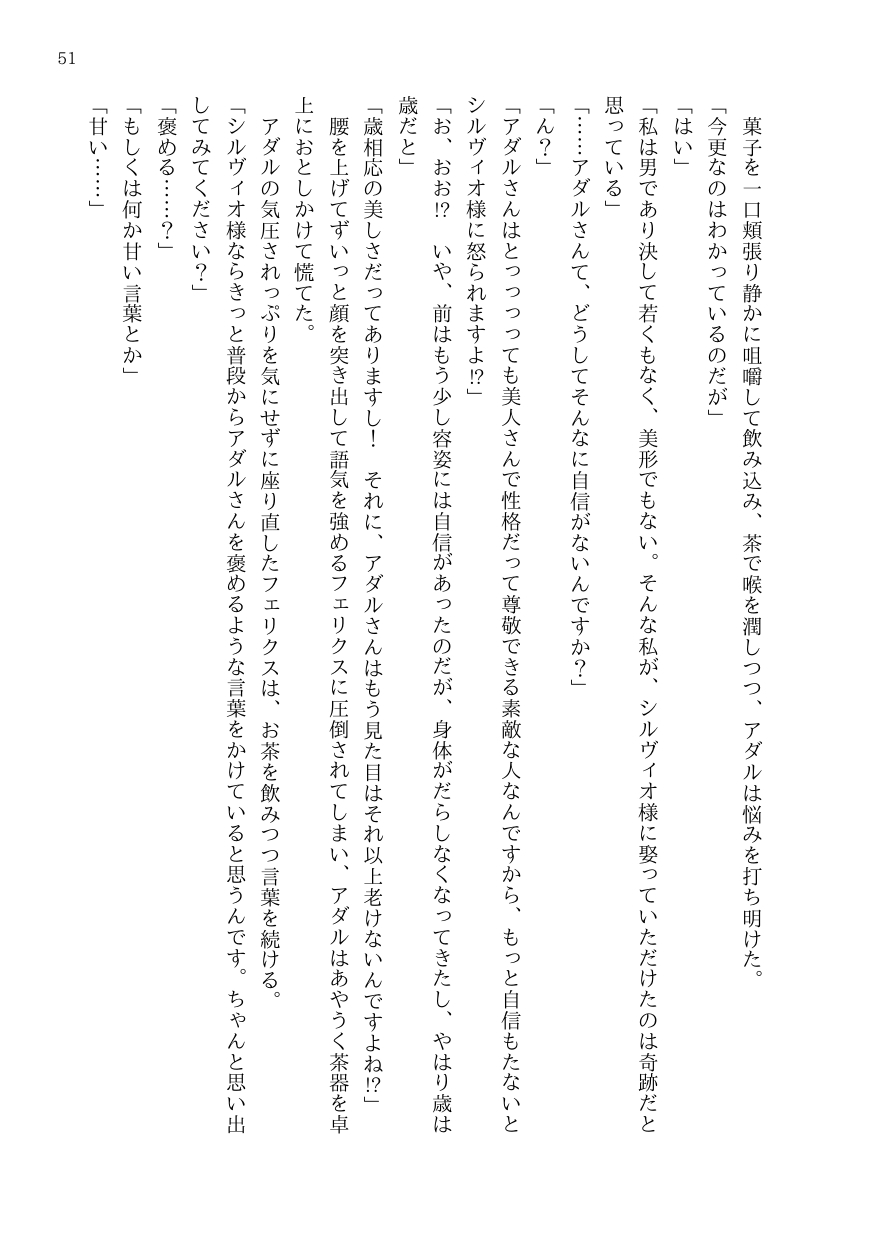 51
　菓子を一口頬張り静かに咀嚼して飲み込み、茶で喉を潤しつつ、アダルは悩みを打ち明けた。
「今更なのはわかっているのだが」
「はい」
「私は男であり決して若くもなく、美形でもない。そんな私が、シルヴィオ様に娶っていただけたのは奇跡だと
思っている」
「……アダルさんて、どうしてそんなに自信がないんですか？」
「ん？」
「アダルさんはとっっっっても美人さんで性格だって尊敬できる素敵な人なんですから、もっと自信もたないと
シルヴィオ様に怒られますよ!?」
「お、おお!?　いや、前はもう少し容姿には自信があったのだが、身体がだらしなくなってきたし、やはり歳は
歳だと」
「歳相応の美しさだってありますし！　それに、アダルさんはもう見た目はそれ以上老けないんですよね!?」
　腰を上げてずいっと顔を突き出して語気を強めるフェリクスに圧倒されてしまい、アダルはあやうく茶器を卓
上におとしかけて慌てた。
　アダルの気圧されっぷりを気にせずに座り直したフェリクスは、お茶を飲みつつ言葉を続ける。
「シルヴィオ様ならきっと普段からアダルさんを褒めるような言葉をかけていると思うんです。ちゃんと思い出
してみてください？」
「褒める……？」
「もしくは何か甘い言葉とか」
「甘い……」